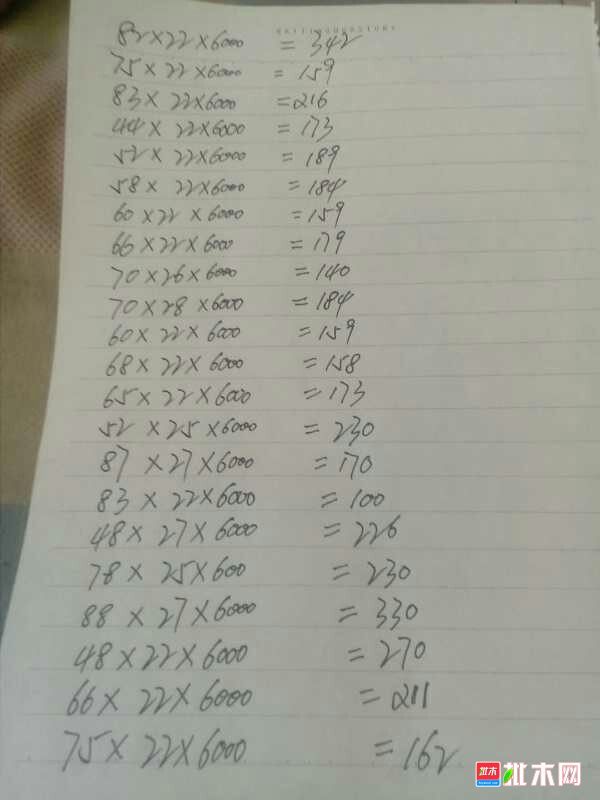 82×22×6000 =342
75×22×6000 =159
83×22×6000 =216
44×22×6000 =173
52×22×6000 =189
58×22×6000 =184
60×22×6000 =159
66×22×6000 =179
70×26×6000 =140
70×28×6000 =184
60×22×6000 =159
68×22×6000 =158
65×22×6000 =173
52×25×6000 =230
87×27×6000 =170
83×22×6000 =100
48×27×6000 =226
78×25×600 =230
88×27×6000 =330
48×22×6000 =270
66×22×6000 =211
75×22×6000 =162
批木 批木网